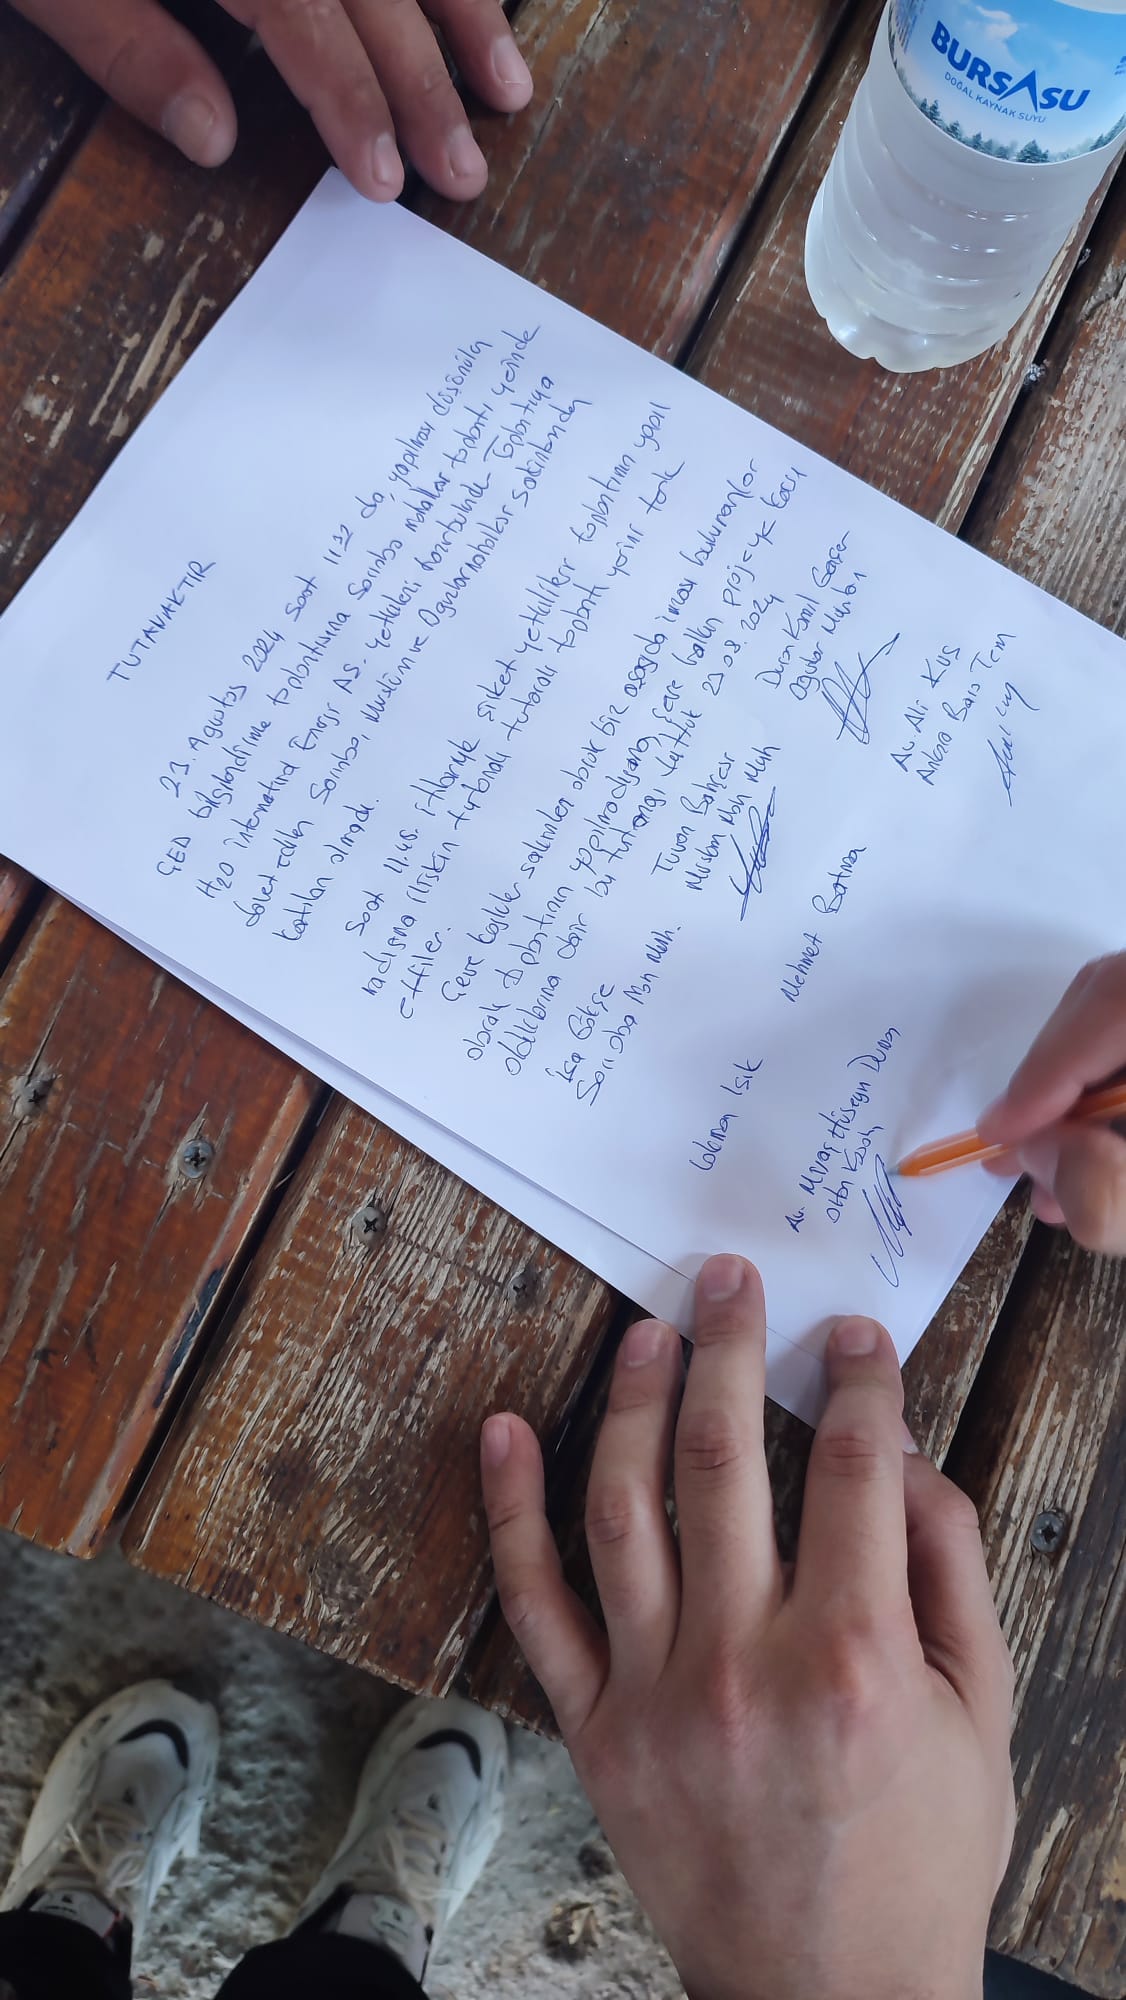 BURSASU
DOĞAL KAYNAK SUYU
TUTANAKTIR
23. Ağustos 2024 Saat 11:32 da, yapılması düşünülen
ÇED bilgilendirme toplantısına Sarıoba mahallesi toplantı yerinde
H2O International Enerji AŞ. yetkilileri hazırbulundu. Toplantıya
davet edilen Sarıoba, Müslüm ve Oğuzlar mahalleler sakinlerinden
katılan olmadı.
Saat 11.45. itibarıyle şirket yetkilileri toplantının yapıl
madığına ilişkin tutanağı tutarak toplantı yerini terk
ettiler.
Çevre köylük sakinleri olarak biz aşağıda imzası bulunanlar
olarak toplantının yapılmadığını, çevre halkın projeye karşı
olduklarına dair bu tutanağı tuttuk 23.08.2024
İsa Gökçe
Sarıoba Mah Muh.
Turan Bahçesi
Müslüm Mah Muh
Duran Kamil Geçer
Oğuzlar Muhtarı
Işık
Mehmet Batman
Av. Ali KUŞ
Ankara Baro Tem
Av. Miraç Hüseyin Duman